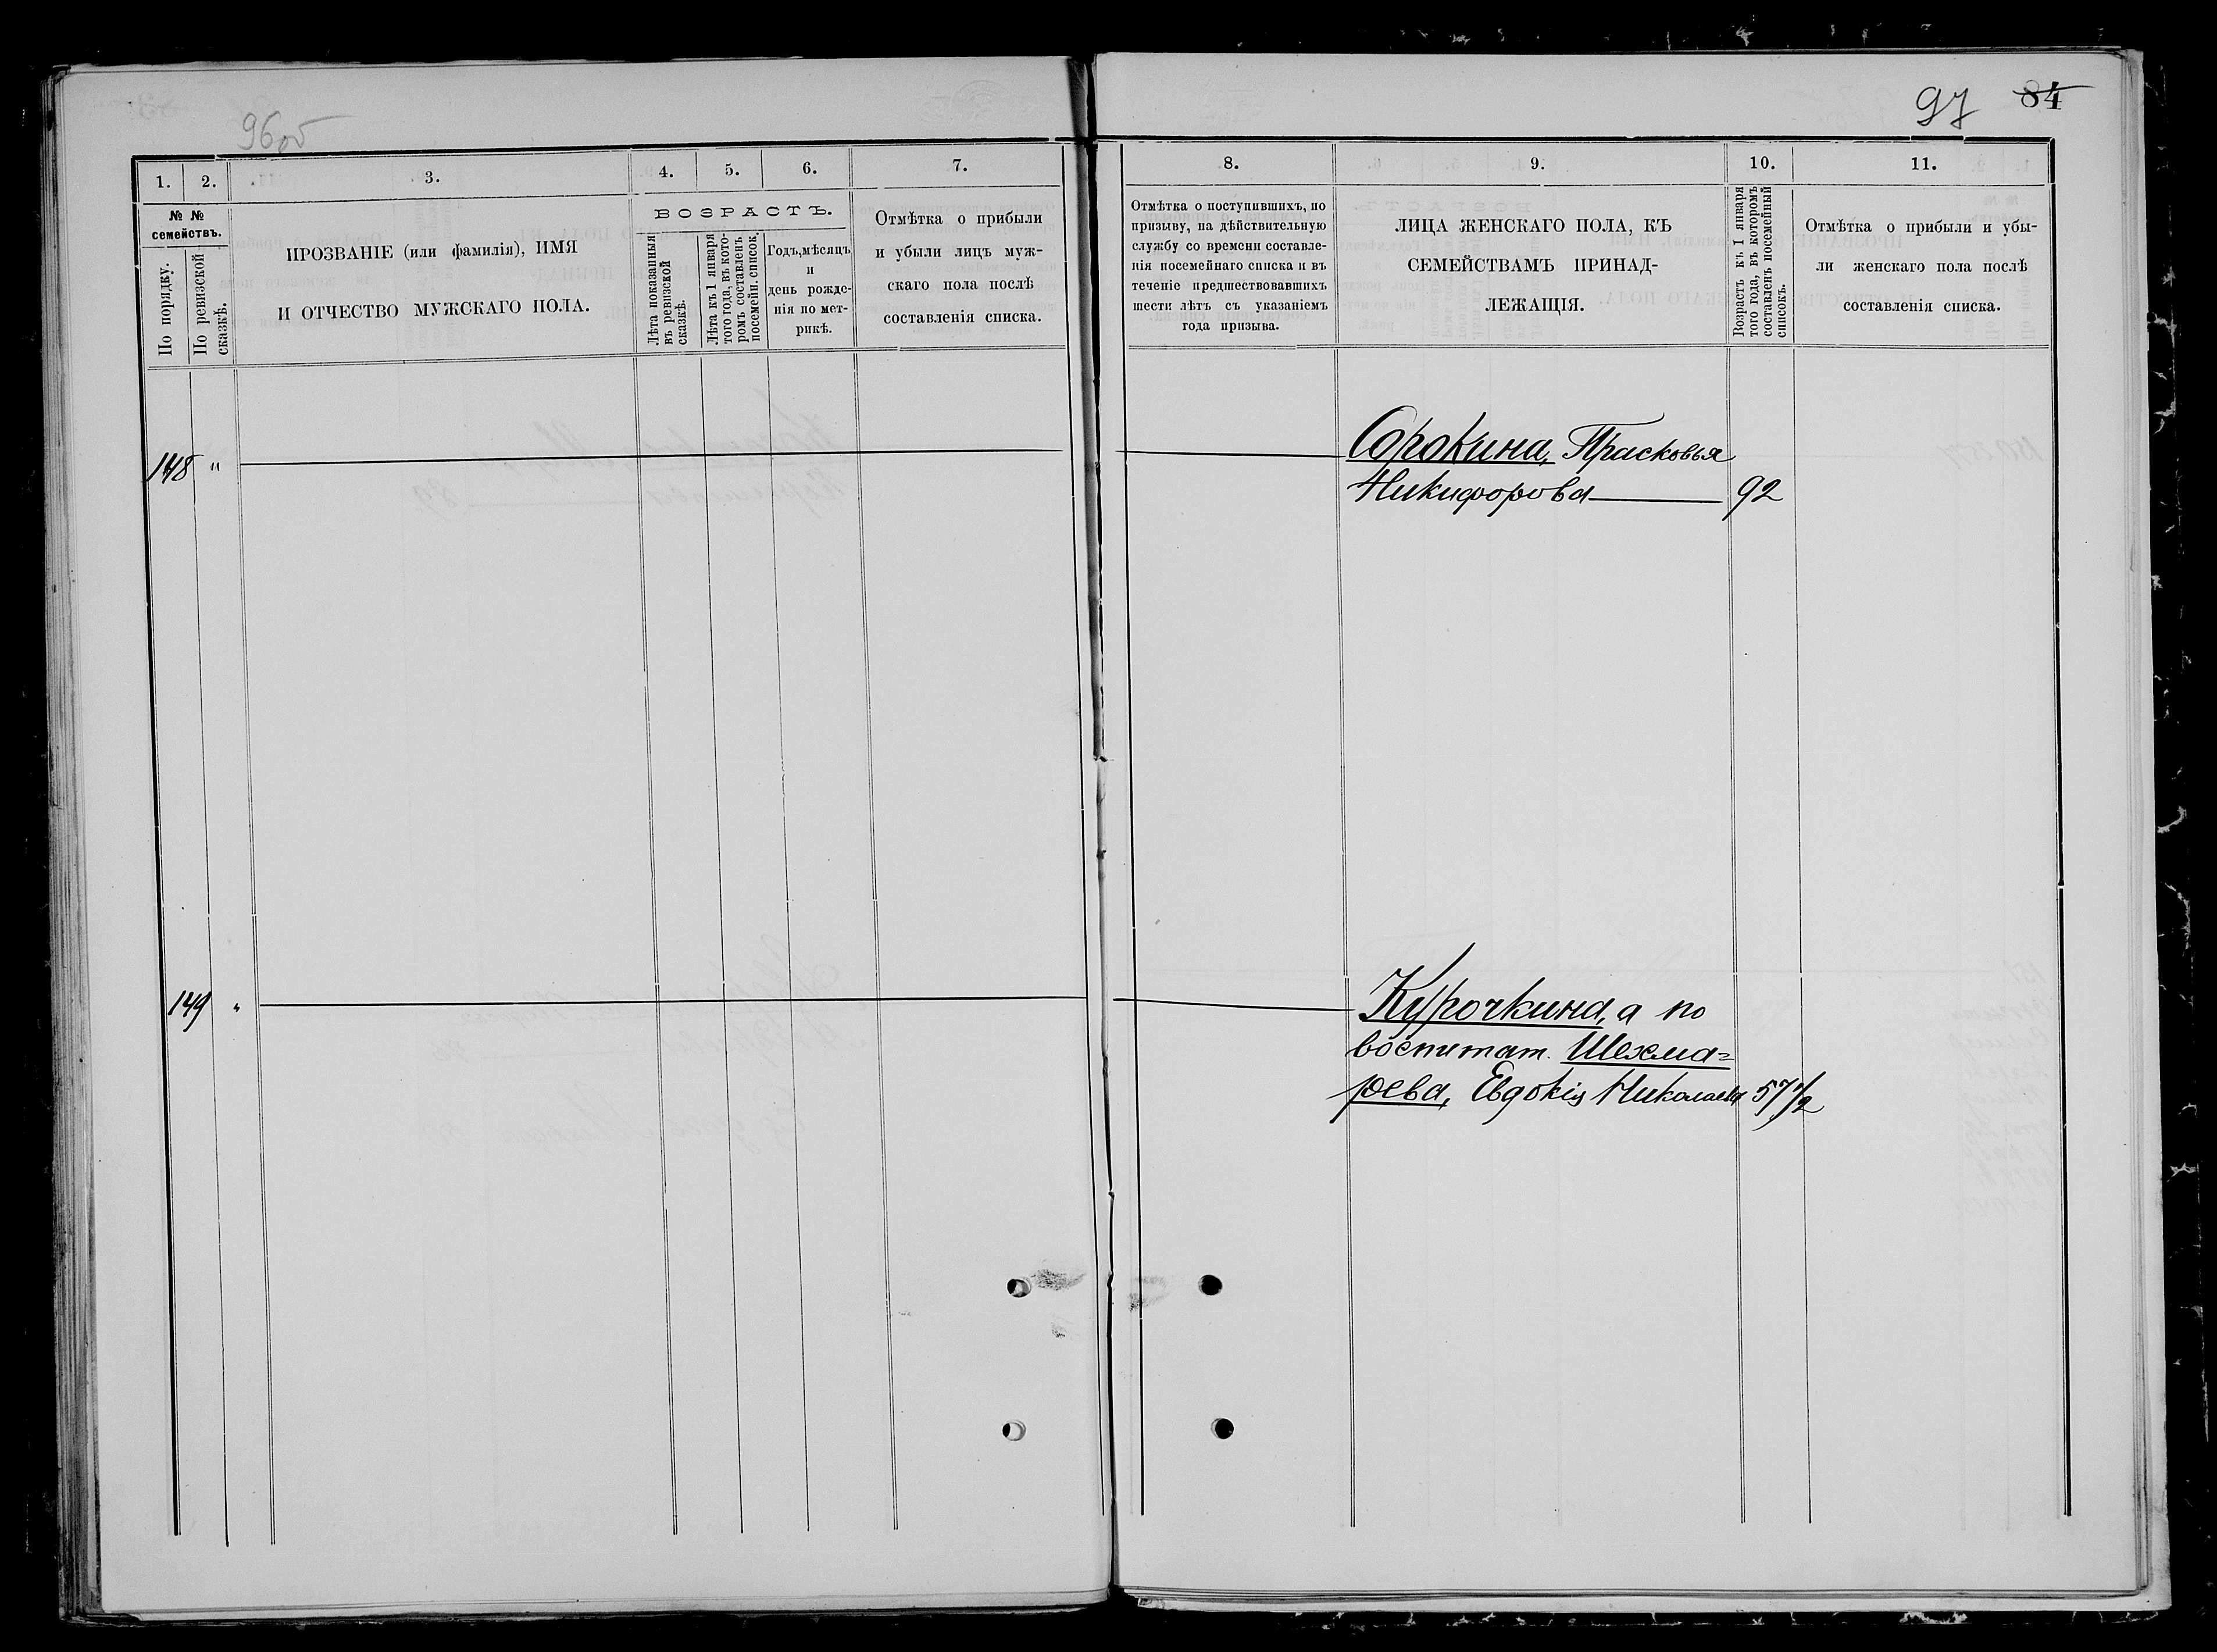 96об
97 84
1. 2. 3. 4. 5. 6. 7.
№ №
семействъ.
По порядку.
По ревизской
сказкѣ.
ПРОЗВАНІЕ (или фамилія), ИМЯ
И ОТЧЕСТВО МУЖСКАГО ПОЛА.
ВОЗРАСТЪ.
Лѣта показанныя
въ ревизской
сказкѣ.
Лѣта къ 1 января
того года, въ кото-
ромъ составленъ
посемейн. список.
Годъ, мѣсяцъ
и
день рожде-
нія по мет-
рикѣ.
Отмѣтка о прибыли
и убыли лицъ муж-
скаго пола послѣ
составленія списка.
8. 9. 10. 11.
Отмѣтка о поступившихъ, по
призыву, на дѣйствительную
службу со времени составле-
нія посемейнаго списка и въ
теченіе предшествовавшихъ
шести лѣтъ съ указаніемъ
года призыва.
ЛИЦА ЖЕНСКАГО ПОЛА, КЪ
СЕМЕЙСТВАМЪ ПРИНАД-
ЛЕЖАЩІЯ.
Возрастъ къ 1 января
того года, въ которомъ
составленъ посемейный
списокъ.
Отмѣтка о прибыли и убы-
ли женскаго пола послѣ
составленія списка.
148 " Сорокина, Прасковья
Никифорова 92
149 " Курочкина, а по
воспитат. Шехма=
рева, Евдокія Николаева 57 1/2